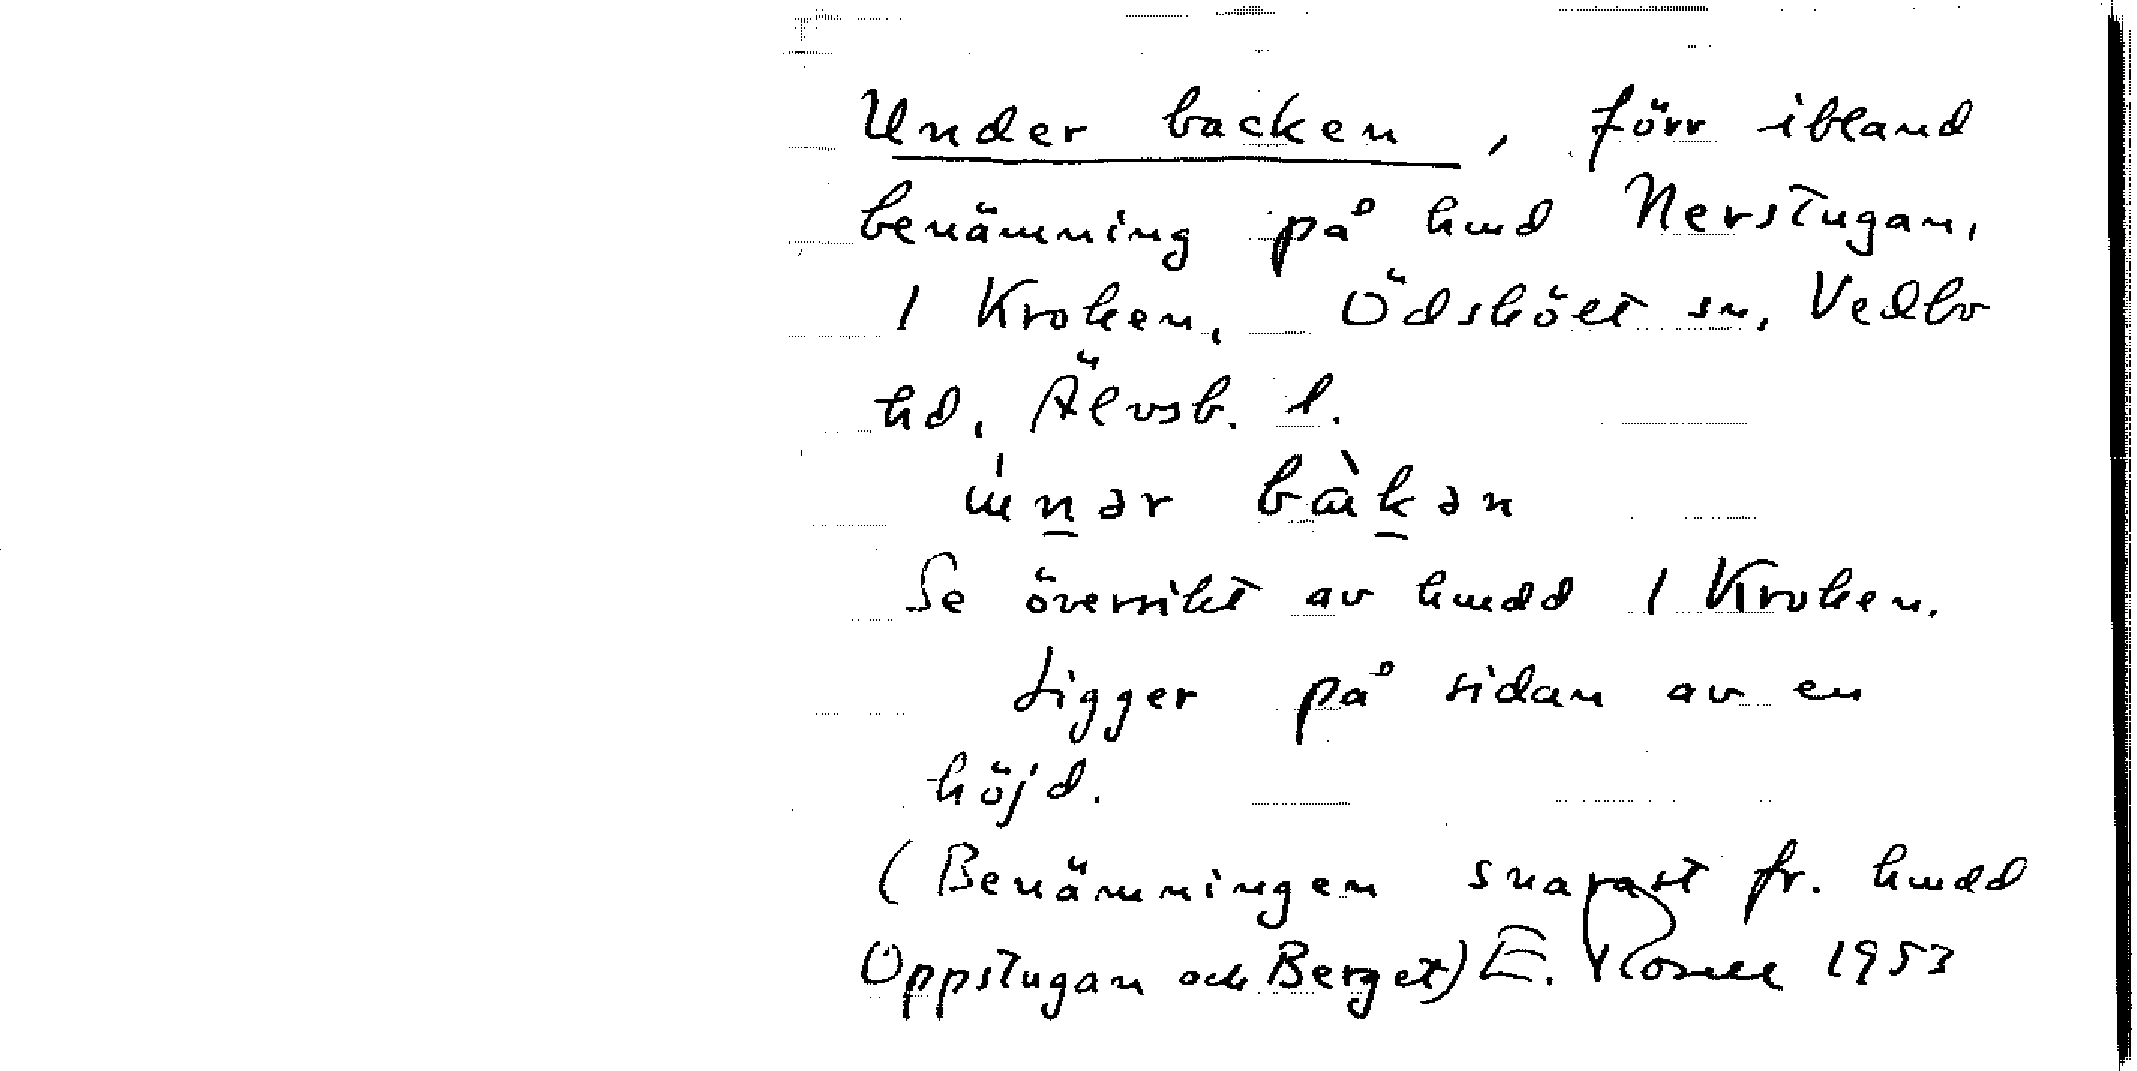 Under backen, förr ibland
benämning på hmd Nerstugan,
1 Kroken, Ödskölt sn, Vedbo
hd, Älvsb. l.
Se översikt av hmdd 1 Kroken.
Ligger på sidan av en
höjd.
(Benämningen snarast fr. hmdd
Oppstugan och Berget) E. Rosell 1953